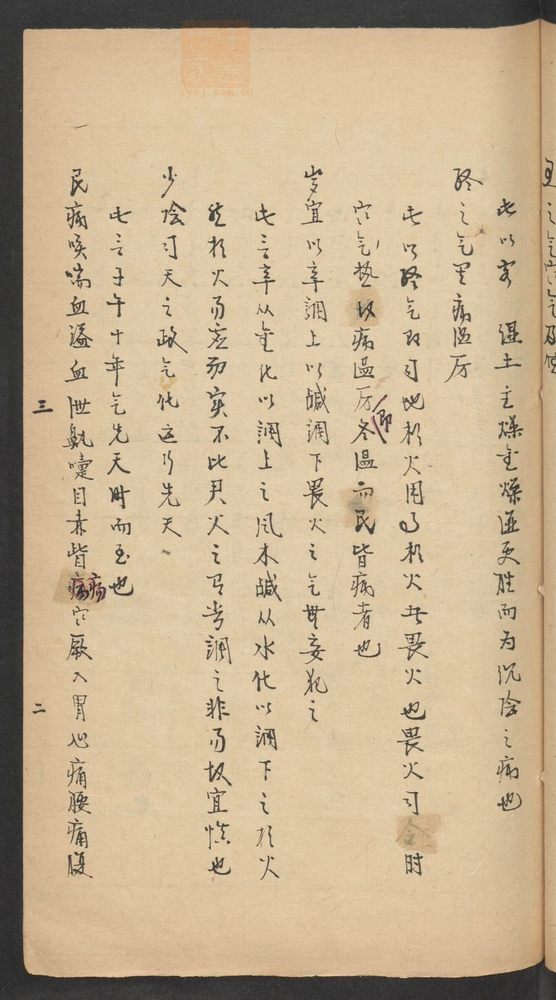 此以客湿土主燥金燥湿更胜而为沉陰之病也
终之气里病温厉
此以终气即司地相火用事相火者畏火也畏火司令时
寒气热故病温厉即冬温而民皆病者也
岁宜以辛調上以鹹調下畏火之气毋妄犯之
此言辛从金化以調上之风木鹹从水化以調下之相火
然相火为虚为实不比君火之可常調之非易故宜慎也
少陰司天之政气化运行先天
此言子午十年气先天时而至也
民病咳喘血溢血泄鼽嚏目赤眥瘍寒厥入胃心痛腰痛腹
三
二